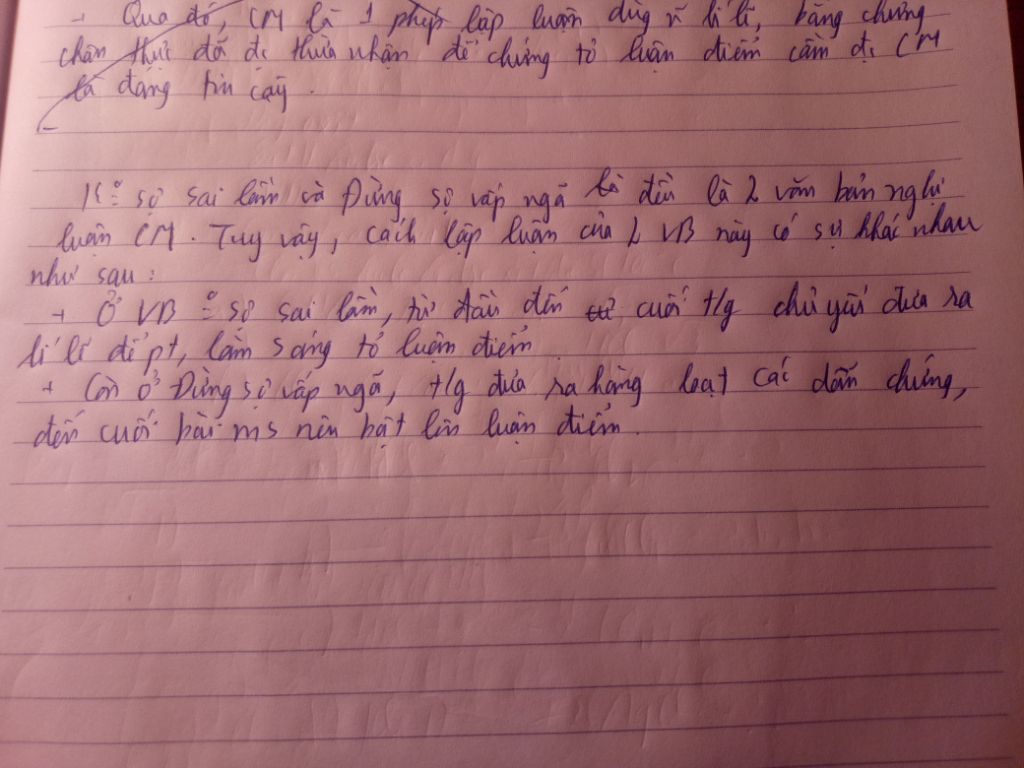 + Qua đó, CM là 1 phép lập luận dùg n~ lí lẽ, bằng chứng
chân thực đã đc thừa nhận để chứng tỏ luận điểm cần đc CM
là đáng tin cậy.
K° sợ sai lầm và Đừng sợ vấp ngã là đều là 2 văn bản nghị
luận CM. Tuy vậy, cách lập luận của 2 VB này có sự khác nhau
như sau:
+ Ở VB K° sợ sai lầm, từ đầu đến cuối t/g chủ yếu đưa ra
lí lẽ để pt, làm sáng tỏ luận điểm
+ Còn ở Đừng sợ vấp ngã, t/g đưa ra hàng loạt các dẫn chứng,
đến cuối bài ms nêu bật lên luận điểm.